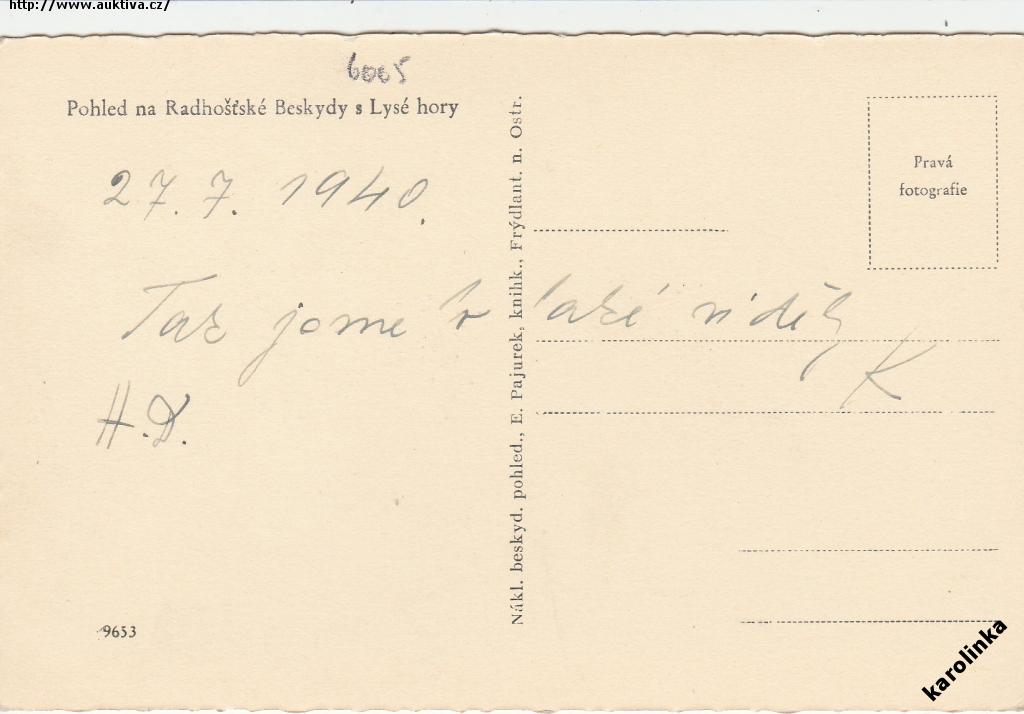 http://www.auktiva.cz/
6005
Pohled na Radhošťské Beskydy s Lysé hory
27. 7. 1940.
Tak jsme to také viděly
K
H.D.
Nákl. beskyd. pohled., E. Pajurek, knihk., Frýdlant. n. Ostr.
Pravá
fotografie
9653
karolinka